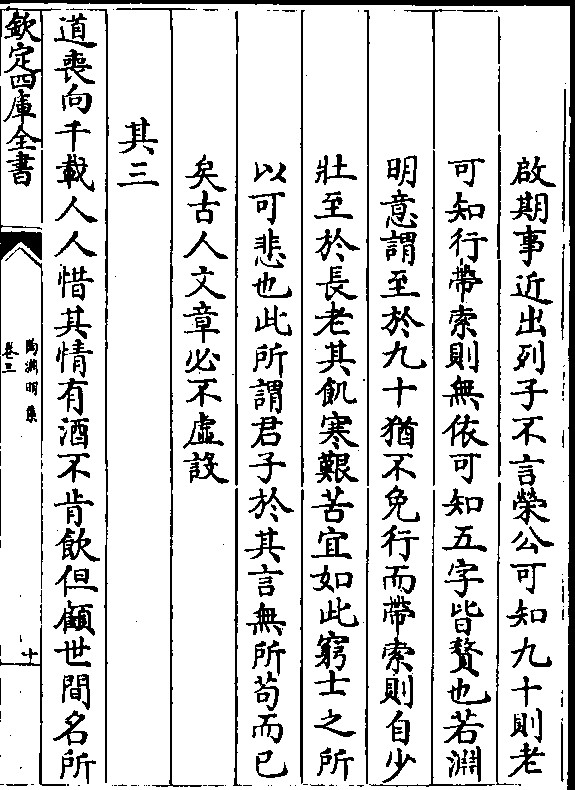 啟期事近出列子不言榮公可知九十則老
可知行帶索則無依可知五字皆贅也若淵
明意謂至於九十猶不免行而帶索則自少
壯至於長老其飢寒艱苦宜如此窮士之所
以可悲也此所謂君子於其言無所苟而已
矣古人文章必不虛設
其三
道喪向千載人人惜其情有酒不肯飲但顧世間名所
欽定四庫全書
陶淵明集
卷三
十